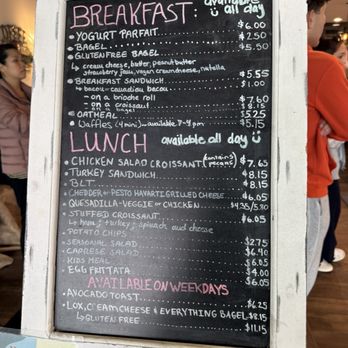 BREAKFAST: available all day
• YOGURT PARFAIT $6.00
• BAGEL $2.50
• GLUTEN FREE BAGEL $5.50
↳ cream cheese, butter, peanut butter
strawberry jam, vegan cream cheese, nutella
• BREAKFAST SANDWICH $5.55
↳ bacon - canadian bacon $1.00
- on a brioche roll $7.60
- on a croissant $8.15
- on a bagel
• OATMEAL $5.25
• Waffles (4 mini) - available 7-4 pm $5.15
LUNCH available all day
• CHICKEN SALAD CROISSANT (contains pecans) $7.65
• TURKEY SANDWICH $8.15
• BLT $8.15
• CHEDDER or PESTO HAVARTI GRILLED CHEESE $6.05
• QUESADILLA - VEGGIE or CHICKEN $4.35/5.30
• STUFFED CROISSANT $6.05
↳ ham, turkey, spinach and cheese
• POTATO CHIPS
• SEASONAL SALAD $2.75
• CAPRESE SALAD $6.40
• KIDS MEAL $6.05
• EGG FRITTATA $4.00
$6.05
AVAILABLE ON WEEKDAYS
• AVOCADO TOAST $6.25
• LOX, CREAM CHEESE & EVERYTHING BAGEL $8.15
↳ GLUTEN FREE $11.15